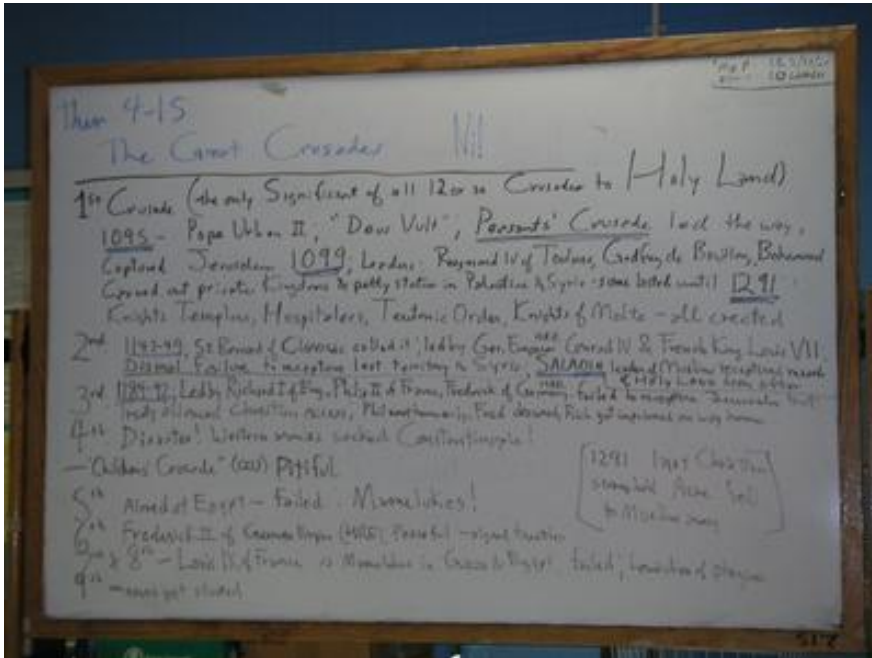 4-15
The Great Crusades Ni!
1st Crusade (the only Significant of all 12 or so Crusades to Holy Land)
1095 - Pope Urban II, "Deus Vult", Peasants' Crusade led the way,
Captured Jerusalem 1099, Leaders: Raymond IV of Toulouse, Godfrey de Bouillon, Bohemond
Carved out private Kingdoms & petty states in Palestine & Syria - some lasted until 1291
Knights Templars, Hospitalers, Teutonic Order, Knights of Malta - all created
2nd 1147-49, St Bernard of Clairvaux called it; led by Ger. Emperor Conrad IV & French King Louis VII
Dismal Failure to recapture lost territory in Syria, SALADIN leader of Moslem
of Holy Land
3rd 1189-92, Led by Richard I of Eng, Philip II of France, Frederick of Germany - failed to recapture Jerusalem but
allowed Christian access, Phil went home early, Fred drowned, Rich got imprisoned on way home
4th Disaster! Western armies sacked Constantinople!
- "Children's Crusade" Pitiful
5th Aimed at Egypt - failed. Mamelukes!
6th Frederick II of German Empire (HRE), Peaceful - signed treaties
7th & 8th - Louis IX of France vs Mamelukes in & Egypt, failed; Louis died of plague
9th - never got started
[1291 last Christian
stronghold Acre fell
to Moslem army]